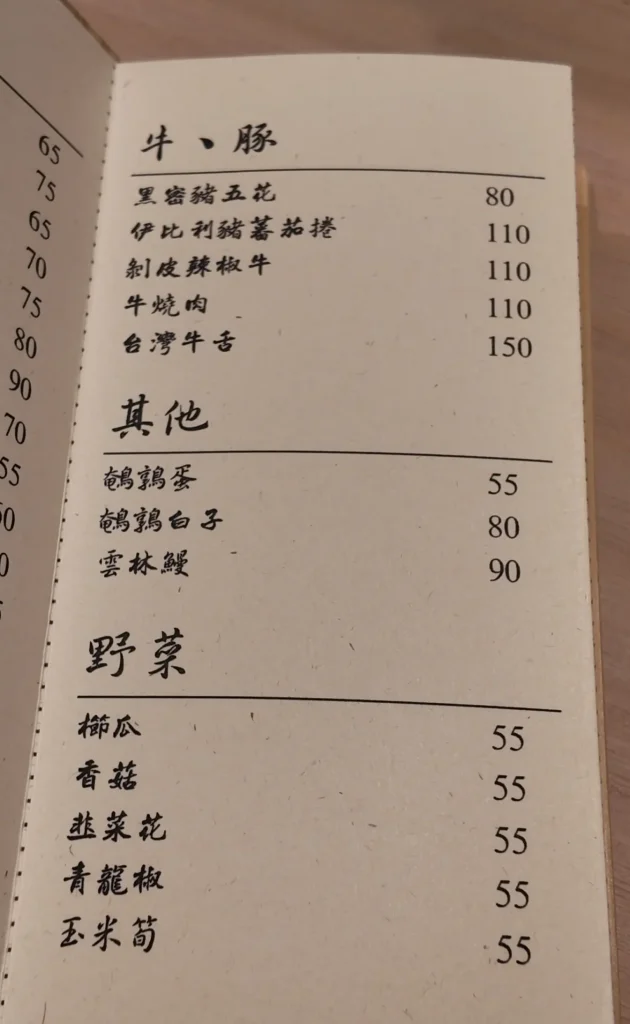 65
75
65
70
75
80
90
70
55
牛、豚
黑密豬五花 80
伊比利豬蕃茄捲 110
剝皮辣椒牛 110
牛燒肉 110
台灣牛舌 150
其他
鵪鶉蛋 55
鵪鶉白子 80
雲林鰻 90
野菜
櫛瓜 55
香菇 55
韭菜花 55
青龍椒 55
玉米筍 55